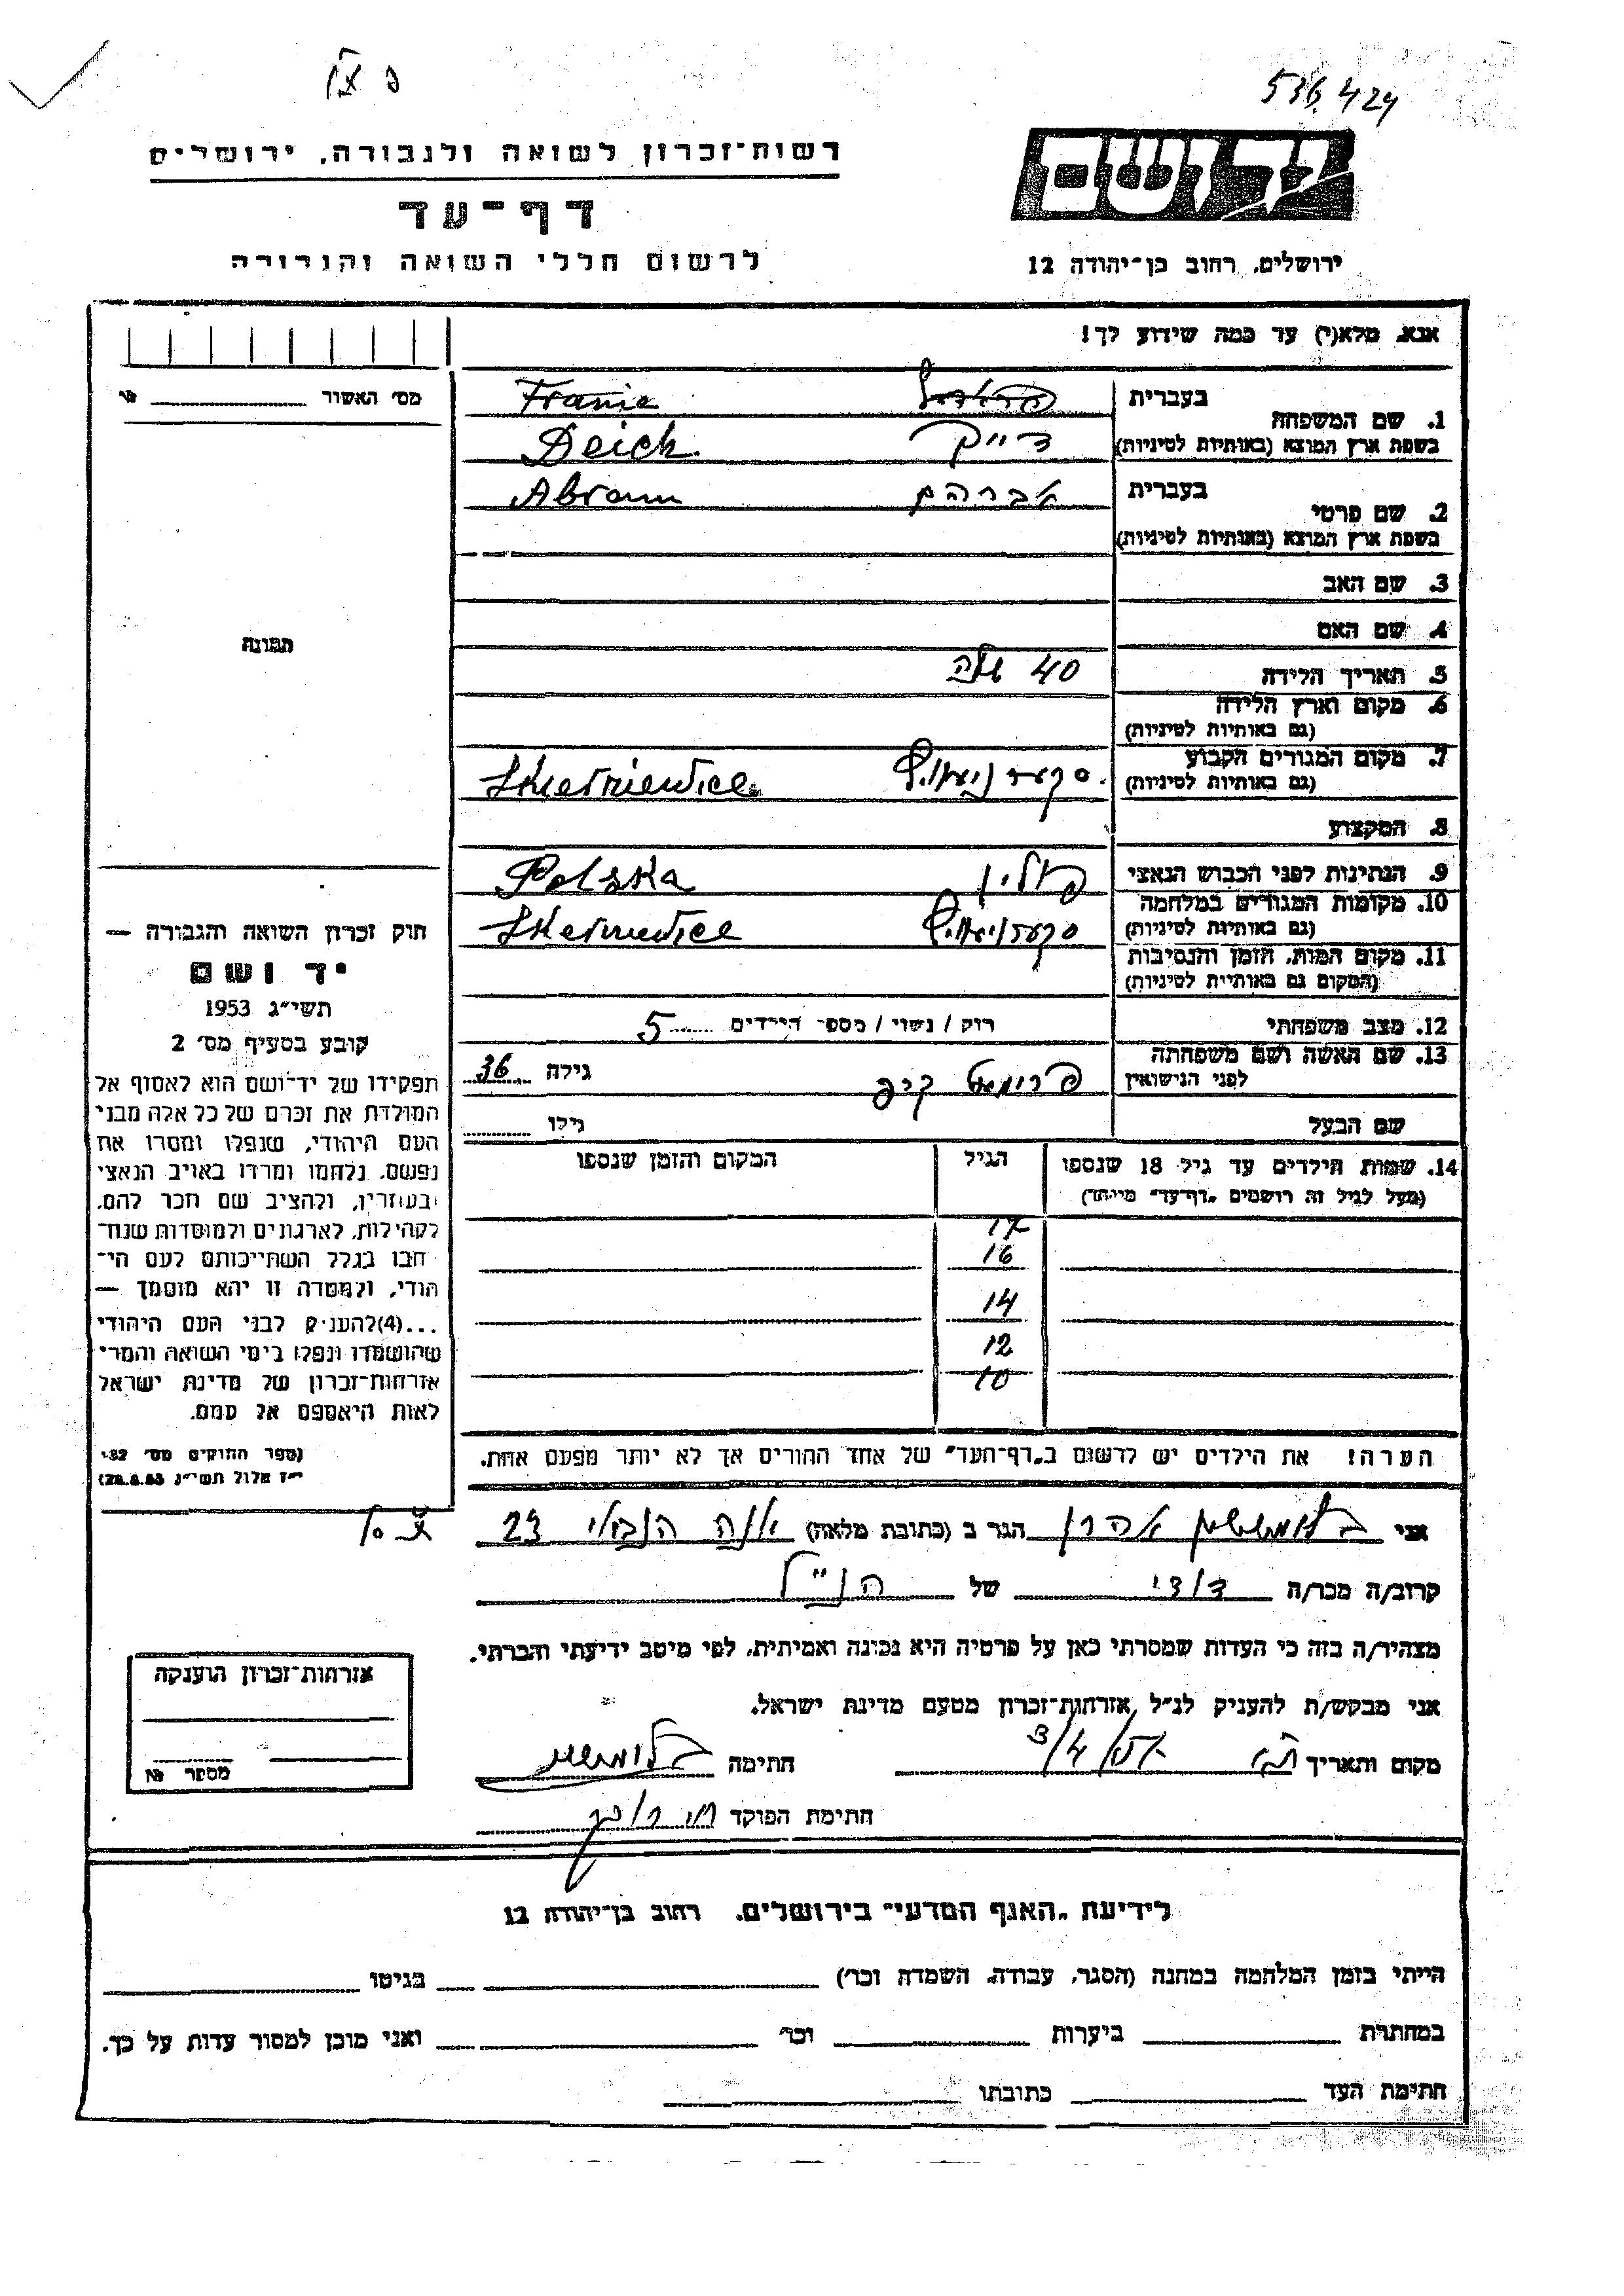 536424
רשות־זכרון לשואה ולגבורה, ירושלים
דף־עד
לרשום חללי השואה והגבורה
יד ושם
ירושלים, רחוב בן־יהודה 12
אנא, מלא(י) עד כמה שידוע לך!
מס׳ האשור
תמונה
חוק זכרון השואה והגבורה —
יד ושם
תשי״ג 1953
קובע בסעיף מס׳ 2
תפקידו של יד־ושם הוא לאסוף אל
המולדת את זכרם של כל אלה מבני
העם היהודי, שנפלו ומסרו את
נפשם, נלחמו ומרדו באויב הנאצי
ובעוזריו, ולהציב שם וזכר להם,
לקהילות, לארגונים ולמוסדות שנח־
רבו בגלל השתייכותם לעם הי־
הודי, ולמטרה זו יהא מוסמך —
...(4) להעניק לבני העם היהודי
שהושמדו ונפלו בימי השואה והמרי
אזרחות־זכרון של מדינת ישראל
לאות היאספם אל עמם.
(ספר החוקים מס׳ 132
י״ז אלול תשי״ג 28.8.53)
1. שם המשפחה
בעברית
Franie
בשפת ארץ המוצא (באותיות לטיניות) דייק Deich
2. שם פרטי
בעברית אברהם Abram
בשפת ארץ המוצא (באותיות לטיניות)
3. שם האב
4. שם האם
5. תאריך הלידה 40 שנה
6. מקום וארץ הלידה
(גם באותיות לטיניות)
7. מקום המגורים הקבוע
(גם באותיות לטיניות) Skierniewice
8. המקצוע
9. הנתינות לפני הכבוש הנאצי פולין Polska
10. מקומות המגורים במלחמה
(גם באותיות לטיניות)
11. מקום המות, הזמן והנסיבות
(המקום גם באותיות לטיניות)
12. מצב משפחתי רוק / נשוי / מספר הילדים 5
13. שם האשה ושם משפחתה
לפני הנישואין גילה 36
שם הבעל גילו
14. שמות הילדים עד גיל 18 שנספו הגיל המקום והזמן שנספו
(מעל לגיל זה רושמים „דף־עד״ מיוחד)
17
16
14
12
10
הערה! את הילדים יש לרשום ב„דף־העד״ של אחד ההורים אך לא יותר מפעם אחת.
אני בלומשטיין אהרן הגר ב (כתובת מלאה) יונה הנביא 23
קרוב/ה מכר/ה דודי של הנ״ל
מצהיר/ה בזה כי העדות שמסרתי כאן על פרטיה היא נכונה ואמיתית, לפי מיטב ידיעתי והכרתי.
אני מבקש/ת להעניק לנ״ל אזרחות־זכרון מטעם מדינת ישראל.
מקום ותאריך חתימה
חתימת הפוקד
אזרחות־זכרון הוענקה
מספר №
לידיעת „האגף המדעי״ בירושלים, רחוב בן־יהודה 12
הייתי בזמן המלחמה במחנה (הסגר, עבודה, השמדה וכו׳) בגיטו
במחתרת ביערות וכו׳ ואני מוכן למסור עדות על כך.
חתימת העד כתובתו